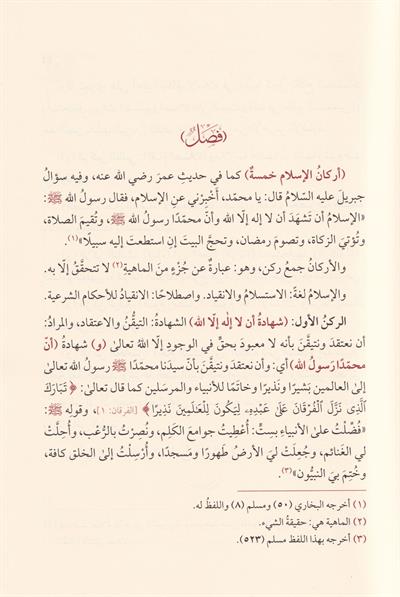 (فَصْلٌ)
(أركانُ الإسلام خمسةٌ) كما في حديثِ عمرَ رضي الله عنه، وفيه سؤالُ
جبريلَ عليه السّلامُ قال: يا محمّد، أَخْبِرْني عنِ الإسلام، فقال رسولُ الله ﷺ:
«الإسلامُ أن تَشهَدَ أن لا إله إلّا الله وأنّ محمّدًا رسولُ الله ﷺ، وتُقيمَ الصلاة،
وتُؤتيَ الزكاة، وتصومَ رمضان، وتحجَّ البيتَ إنِ استطعتَ إليه سبيلًا»(١).
والأركانُ جمعُ ركن، وهو: عبارةٌ عن جُزْءٍ منَ الماهيةِ(٢) لا تتحقَّقُ إلّا به.
والإسلامُ لغةً: الاستسلامُ والانقياد. واصطلاحًا: الانقيادُ للأحكامِ الشرعية.
الركنُ الأول: (شهادةُ أن لا إله إلّا الله) الشهادةُ: التيقُّنُ والاعتقاد، والمرادُ:
أن نعتقدَ ونتيقَّنَ بأنه لا معبودَ بحقٍّ في الوجودِ إلّا اللهُ تعالىٰ (و) شهادةُ (أنّ
محمّدًا رسولُ الله) أي: وأن نعتقدَ ونتيقَّنَ بأنّ سيدَنا محمّدًا ﷺ رسولُ الله تعالىٰ
إلى العالمين بَشيرًا ونَذيرًا وخاتَمًا للأنبياء والمرسَلين كما قال تعالىٰ: ﴿ تَبَارَكَ
ٱلَّذِى نَزَّلَ ٱلْفُرْقَانَ عَلَىٰ عَبْدِهِۦ لِيَكُونَ لِلْعَٰلَمِينَ نَذِيرًا ﴾ [الفرقان: ١]، وقوله ﷺ:
«فُضِّلتُ علىٰ الأنبياءِ بسِتّ: أُعْطِيتُ جوامعَ الكَلِم، ونُصِرْتُ بالرُّعْب، وأُحِلَّتْ
لي الغَنائم، وجُعِلَتْ ليَ الأرضُ طَهورًا ومَسجدًا، وأُرْسِلْتُ إلى الخلقِ كافة،
وخُتِمَ بيَ النبيُّون»(٣).
(١) أخرجه البخاري (٥٠) ومسلم (٨) واللفظُ له.
(٢) الماهية هي: حقيقةُ الشيء.
(٣) أخرجه بهذا اللفظ مسلم (٥٢٣).